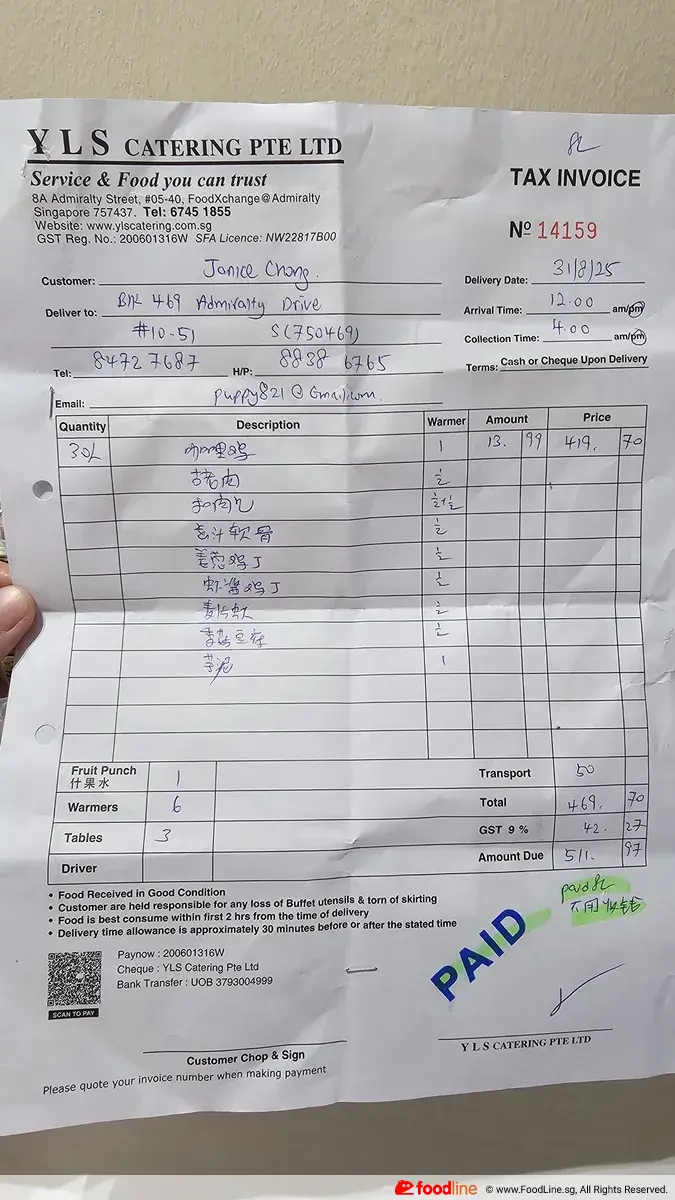 8L
Y L S CATERING PTE LTD
Service & Food you can trust
8A Admiralty Street, #05-40, FoodXchange@Admiralty
Singapore 757437. Tel: 6745 1855
Website: www.ylscatering.com.sg
GST Reg. No.: 200601316W SFA Licence: NW22817B00
TAX INVOICE
Nº 14159
Customer: Janice Chong.
Deliver to: Blk 469 Admiralty Drive
#10-51 S(750469)
Tel: 8472 7687 H/P: 8838 6765
Email: puppy821@Gmail.com.
Delivery Date: 31/8/25
Arrival Time: 12.00 am/pm
Collection Time: 4.00 am/pm
Terms: Cash or Cheque Upon Delivery
Quantity Description Warmer Amount Price
30L 咖哩鸡 1 13. 99 419. 70
古老肉 ½
扣肉包 ½+½
软骨 ½
姜葱鸡丁 ½
虾酱鸡丁 ½
麦片虾 ½
豆腐 ½
芋泥 1
Fruit Punch 1
什果水
Warmers 6
Tables 3
Driver
Transport 50
Total 469. 70
GST 9 % 42. 27
Amount Due 511. 97
• Food Received in Good Condition
• Customer are held responsible for any loss of Buffet utensils & torn of skirting
• Food is best consume within first 2 hrs from the time of delivery
• Delivery time allowance is approximately 30 minutes before or after the stated time
paid 8L
不用收钱
PAID
Paynow : 200601316W
Cheque : YLS Catering Pte Ltd
Bank Transfer : UOB 3793004999
SCAN TO PAY
Customer Chop & Sign
Y L S CATERING PTE LTD
Please quote your invoice number when making payment
foodline © www.FoodLine.sg, All Rights Reserved.